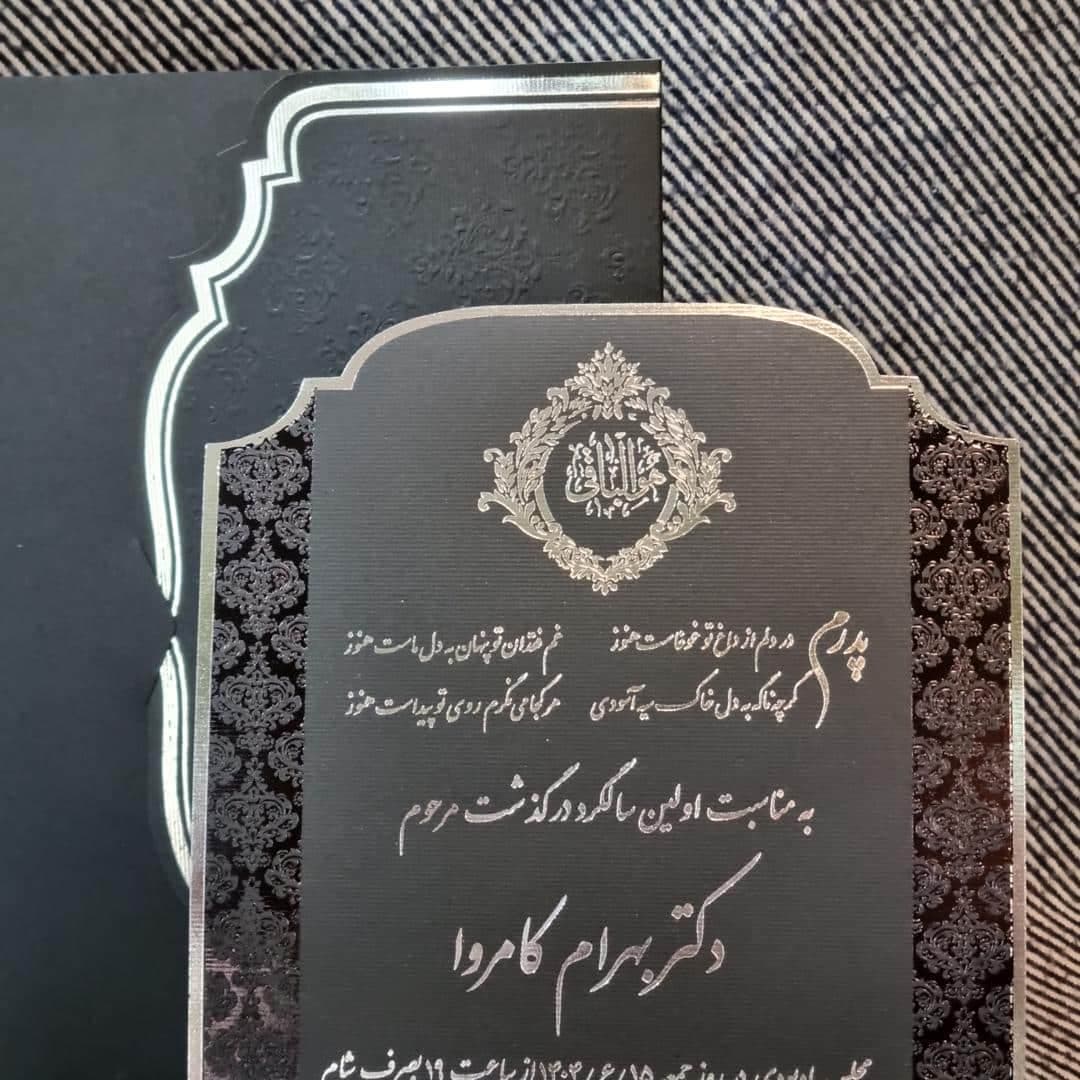 هوالباقی
پدرم
در دلم از داغ تو غوغاست هنوز غم فقدان تو پنهان به دل ماست هنوز
گرچه ناگه به دل خاک سیه آسودی هر کجا می نگرم روی تو پیداست هنوز
به مناسبت اولین سالگرد درگذشت مرحوم
دکتر بهرام کامروا
مجلس یادبودی در روز جمعه ۱۴۰۴/۶/۱۵ از ساعت ۱۹ بصرف شام